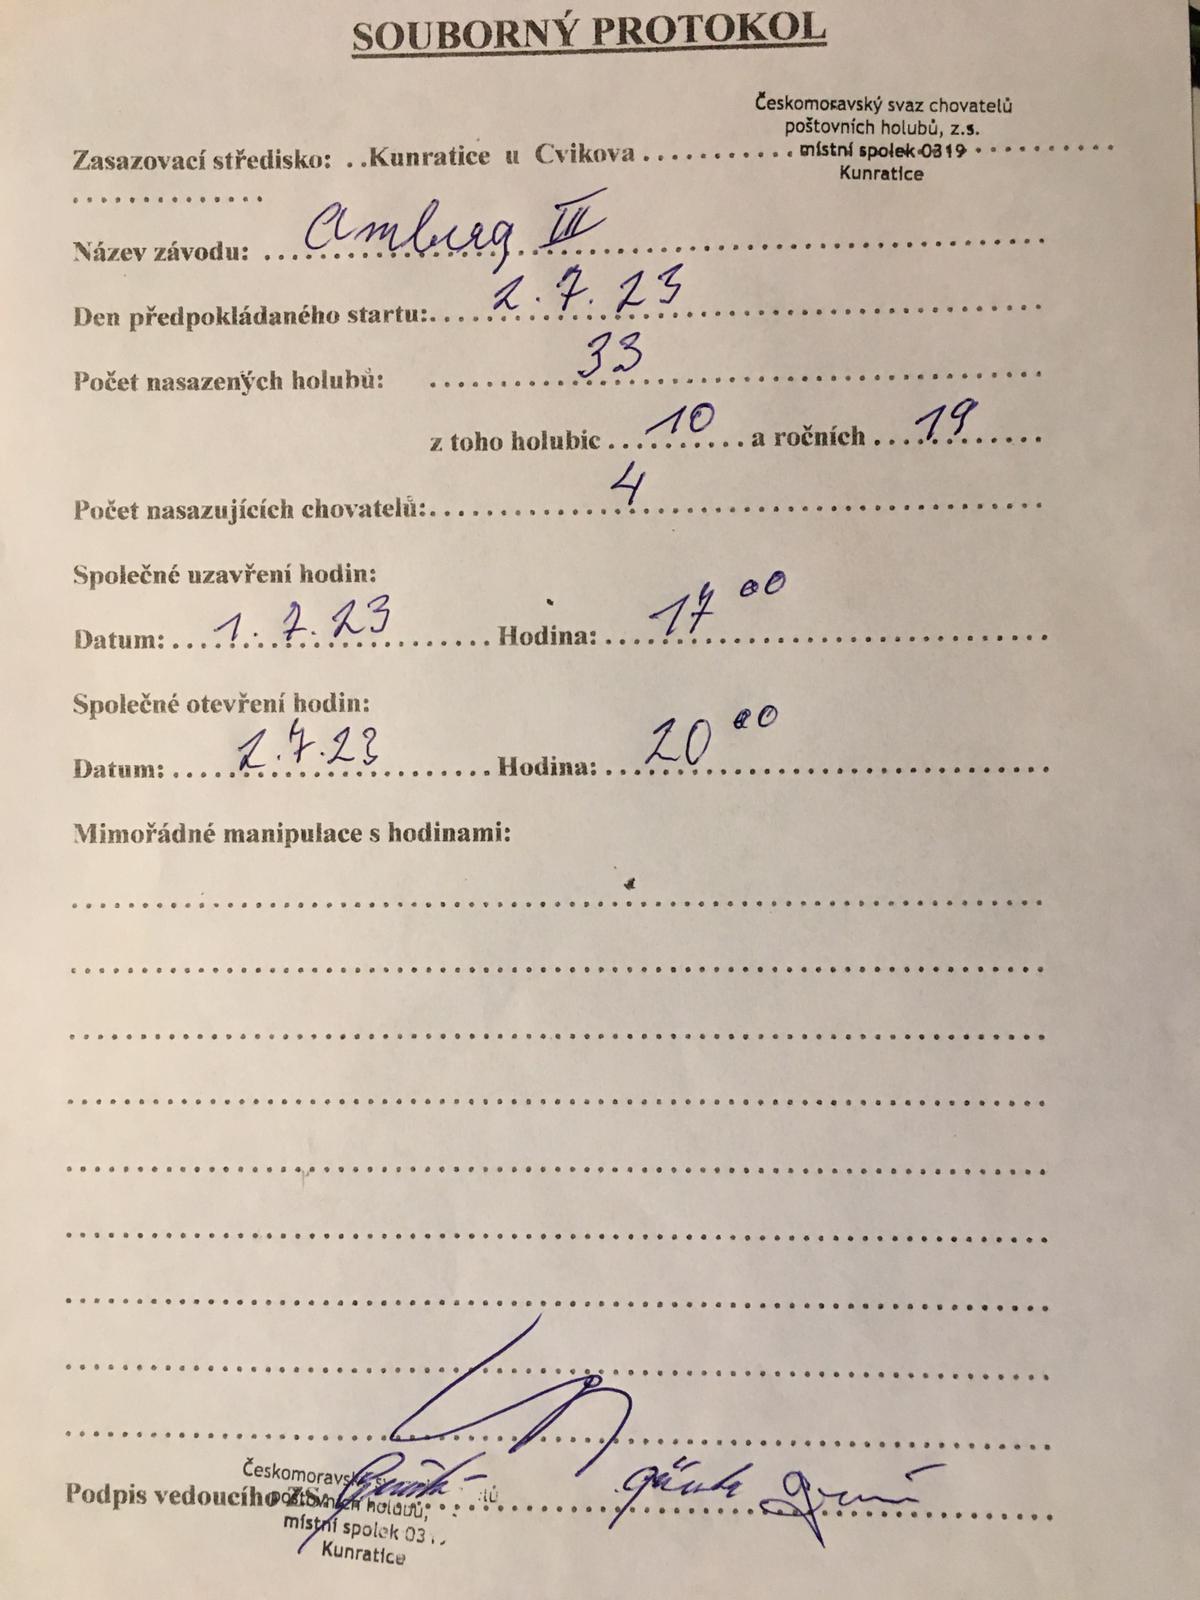 SOUBORNÝ PROTOKOL
Českomoravský svaz chovatelů
poštovních holubů, z.s.
Zasazovací středisko: ..Kunratice u Cvikova
místní spolek 0319
Kunratice
Název závodu: Amberg III
Den předpokládaného startu: 2.7.23
Počet nasazených holubů: 33
z toho holubic 10 a ročních 19
Počet nasazujících chovatelů: 4
Společné uzavření hodin:
Datum: 1.7.23 Hodina: 17 00
Společné otevření hodin:
Datum: 2.7.23 Hodina: 20 00
Mimořádné manipulace s hodinami:
Podpis vedoucího ZS:
místní spolek 03
Kunratice